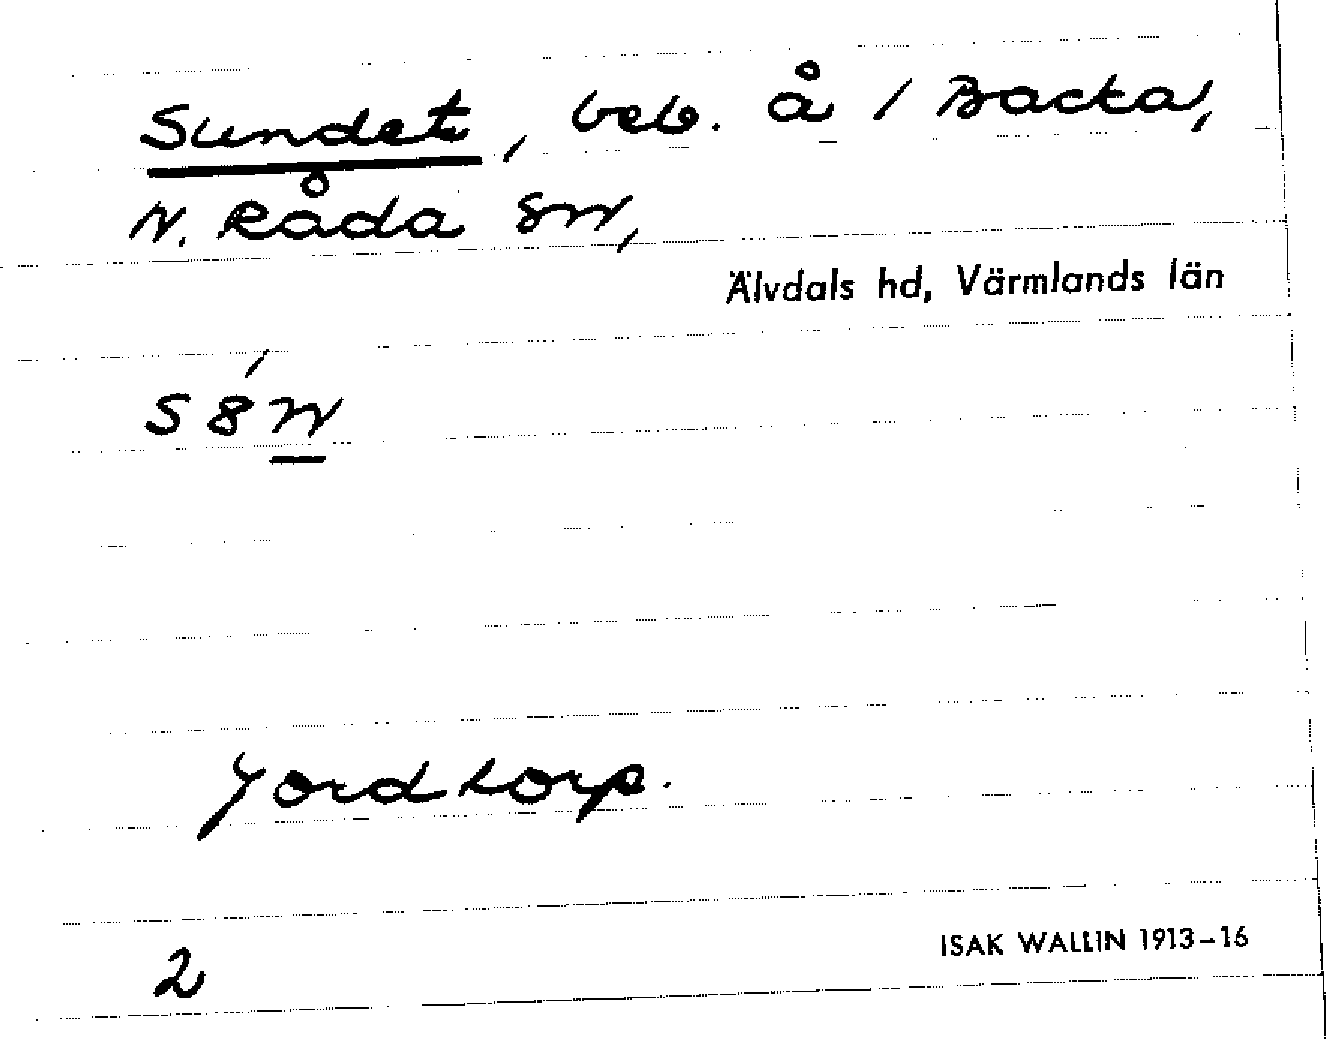 Sundet, beb. å 1 Backa,
N. Råda sn,
Älvdals hd, Värmlands län
Jordtorp.
ISAK WALLIN 1913–16
2